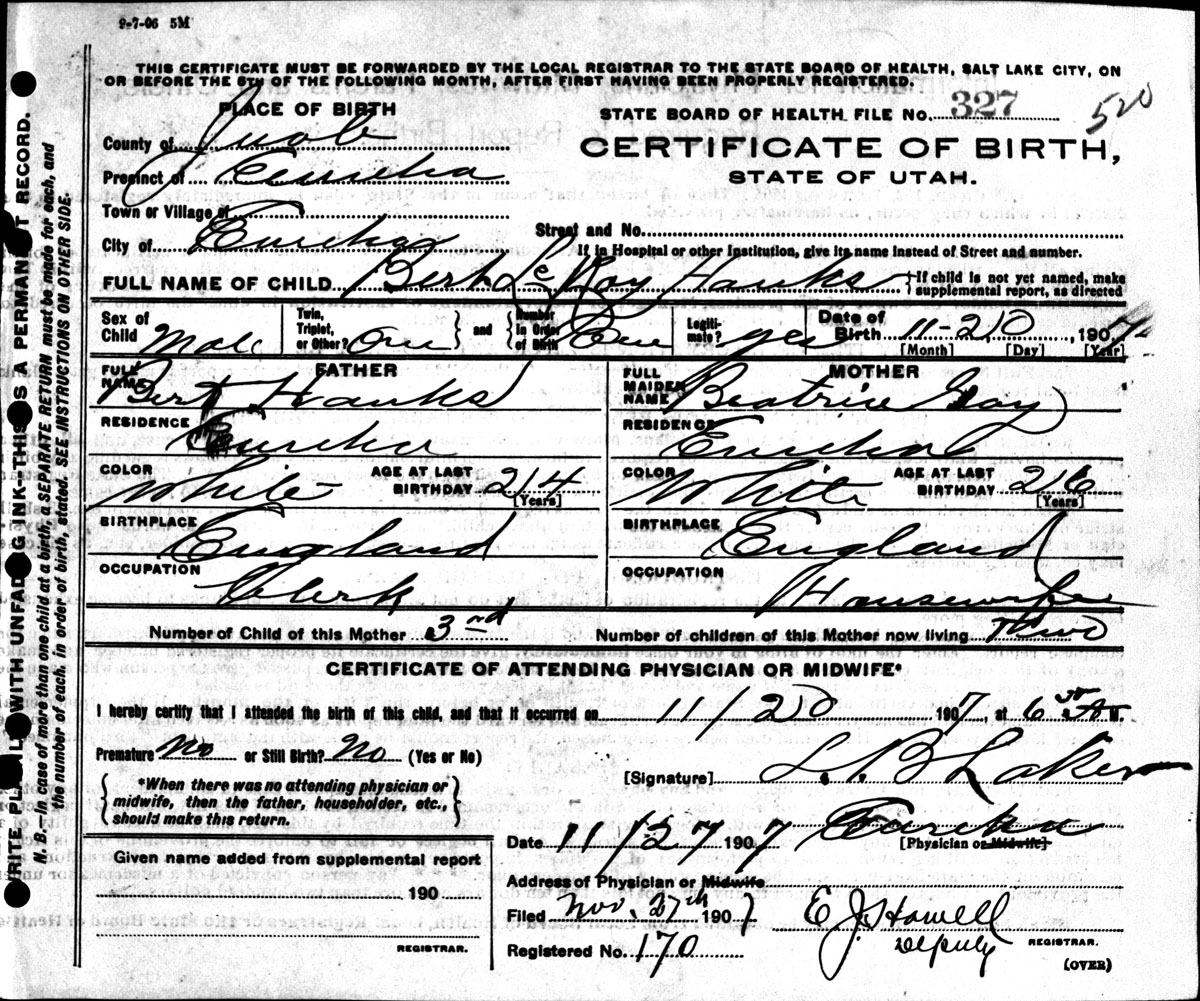 9-7-06 5M
THIS CERTIFICATE MUST BE FORWARDED BY THE LOCAL REGISTRAR TO THE STATE BOARD OF HEALTH, SALT LAKE CITY, ON
OR BEFORE THE 5TH OF THE FOLLOWING MONTH, AFTER FIRST HAVING BEEN PROPERLY REGISTERED.
PLACE OF BIRTH
STATE BOARD OF HEALTH FILE NO. 327
520
County of Juab
CERTIFICATE OF BIRTH,
Precinct of Eureka
STATE OF UTAH.
Town or Village of
Street and No.
City of Eureka
If in Hospital or other Institution, give its name instead of Street and number.
FULL NAME OF CHILD Bert LeRoy Hanks
If child is not yet named, make supplemental report, as directed
Sex of Child Male Twin, Triplet, or Other? One and Number in Order of Birth One Legitimate? yes Date of Birth 11-20, 1907
[Month] [Day] [Year]
FATHER
FULL NAME Bert Hanks
RESIDENCE Eureka
COLOR White AGE AT LAST BIRTHDAY 24
[Years]
BIRTHPLACE England
OCCUPATION Clerk
MOTHER
FULL MAIDEN NAME Beatrice Gay
RESIDENCE Eureka
COLOR White AGE AT LAST BIRTHDAY 26
[Years]
BIRTHPLACE England
OCCUPATION Housewife
Number of Child of this Mother 3rd Number of children of this Mother now living Two
CERTIFICATE OF ATTENDING PHYSICIAN OR MIDWIFE*
I hereby certify that I attended the birth of this child, and that it occurred on 11/20 1907, at 6 A M.
Premature No or Still Birth? No (Yes or No)
[Signature] L. B. Laker
*When there was no attending physician or
midwife, then the father, householder, etc.,
should make this return.
Date 11/27 1907 Eureka
[Physician or Midwife]
Given name added from supplemental report
190
REGISTRAR.
Address of Physician or Midwife
Filed Nov. 27th 1907 E J Howell
Deputy REGISTRAR.
Registered No. 170
(OVER)
WRITE PLAINLY WITH UNFADING INK—THIS IS A PERMANENT RECORD.
N. B.—In case of more than one child at a birth, a SEPARATE RETURN must be made for each, and
the number of each, in order of birth, stated. SEE INSTRUCTIONS ON OTHER SIDE.